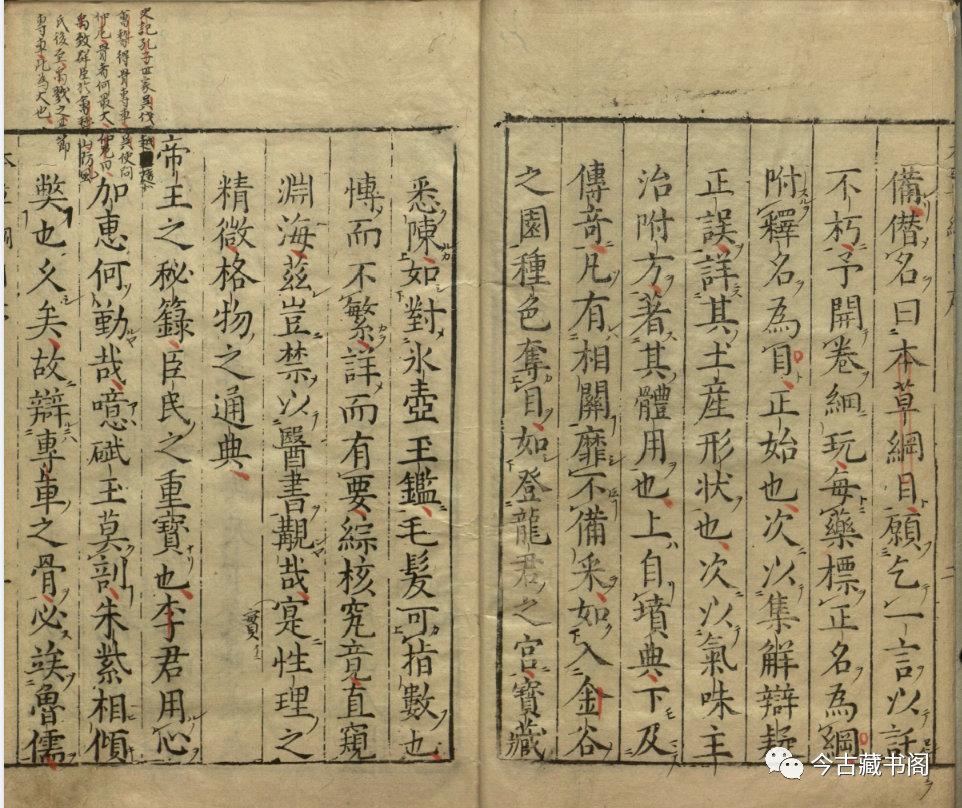 備僣名曰本草綱目願乞一言以託
不朽予開卷細玩每藥標正名為綱
附釋名為目正始也次以集解辯疑
正誤詳其土產形狀也次以氣味主
治附方著其體用也上自墳典下及
傳奇凡有相關靡不備采如入金谷
之園種色奪目如登龍君之宮寶藏
悉陳如對氷壺玉鑑毛髮可指數也
慱而不繁詳而有要綜核究竟直窺
淵海茲豈禁以醫書覯哉寔性理之
實
精微格物之通典
帝王之秘籙臣民之重寶也李君用心
加惠何勤哉噫碔玉莫剖朱紫相傾
獘也久矣故辯專車之骨必竢魯儒
史記孔子世家吳伐越
會稽得骨專車吳使問
仲尼骨者何最大仲尼曰
禹致群臣於會稽山防風
氏後至禹戮之其節
專車此為大也
今古藏书阁